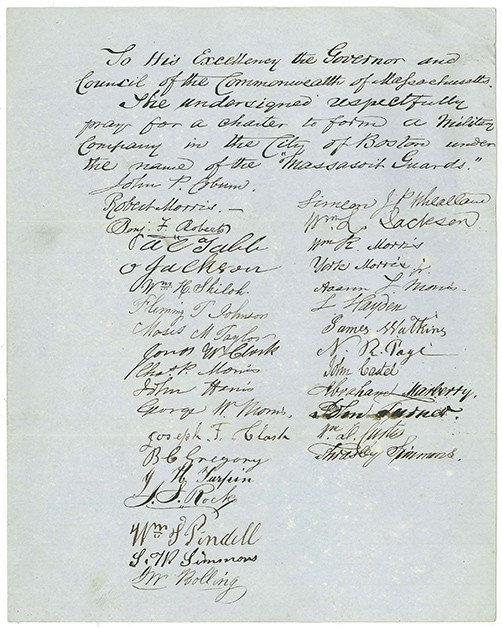 To His Excellency the Governor and
Council of the Commonwealth of Massachusetts.
The undersigned respectfully
pray for a charter to form a Military
Company in the City of Boston under
the name of the "Massasoit Guards."
John P. Coburn.
Robert Morris. —
Benj. F. Roberts
Wm. H.
Flemmg T Johnson
Moses M Taylor
Jonas W. Clark
Chas. H. Morris
John
George W Morris.
Joseph F. Clash
B C Gregory
J. S. Rock
Wm S Pindell
S. W. Simmons
Bolling
Simeon J P
Wm. L. Jackson
Wm H. Morris
York Morris
L Hayden
James Watkins
N R. Page
John
Abraham
Turner.
Simmons.